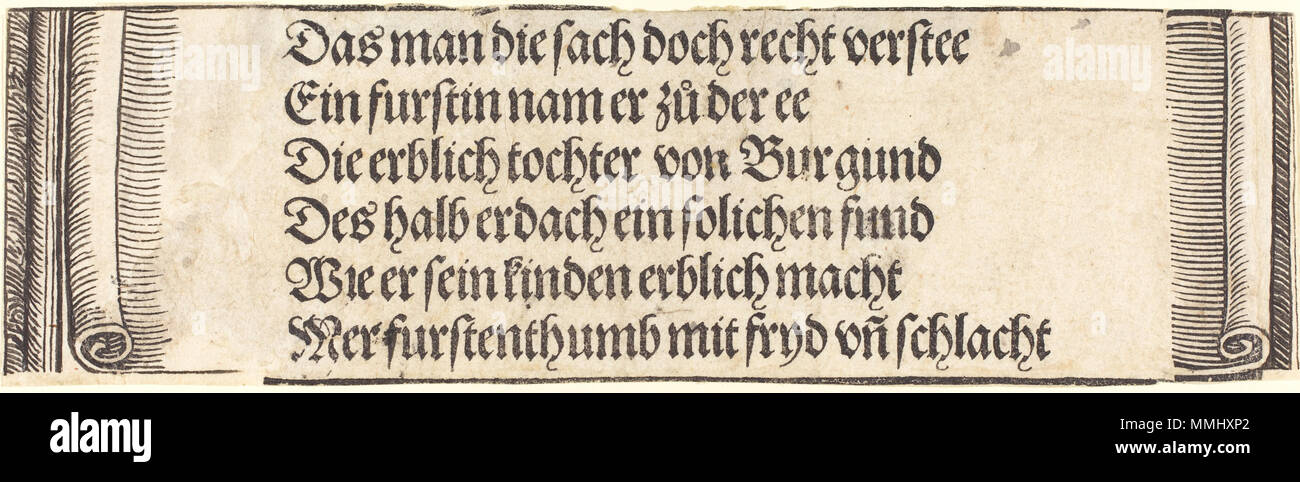 Das man die sach doch recht verstee
Ein furstin nam er zů der ee
Die erblich tochter von Burgund
Des halb erdach ein solichen fund
Wie er sein kinden erblich macht
Mer furstenthumb mit fryd vn̄ schlacht
alamy
alamy
alamy
alamy
alamy
alamy stock photo
MMHXP2
www.alamy.com